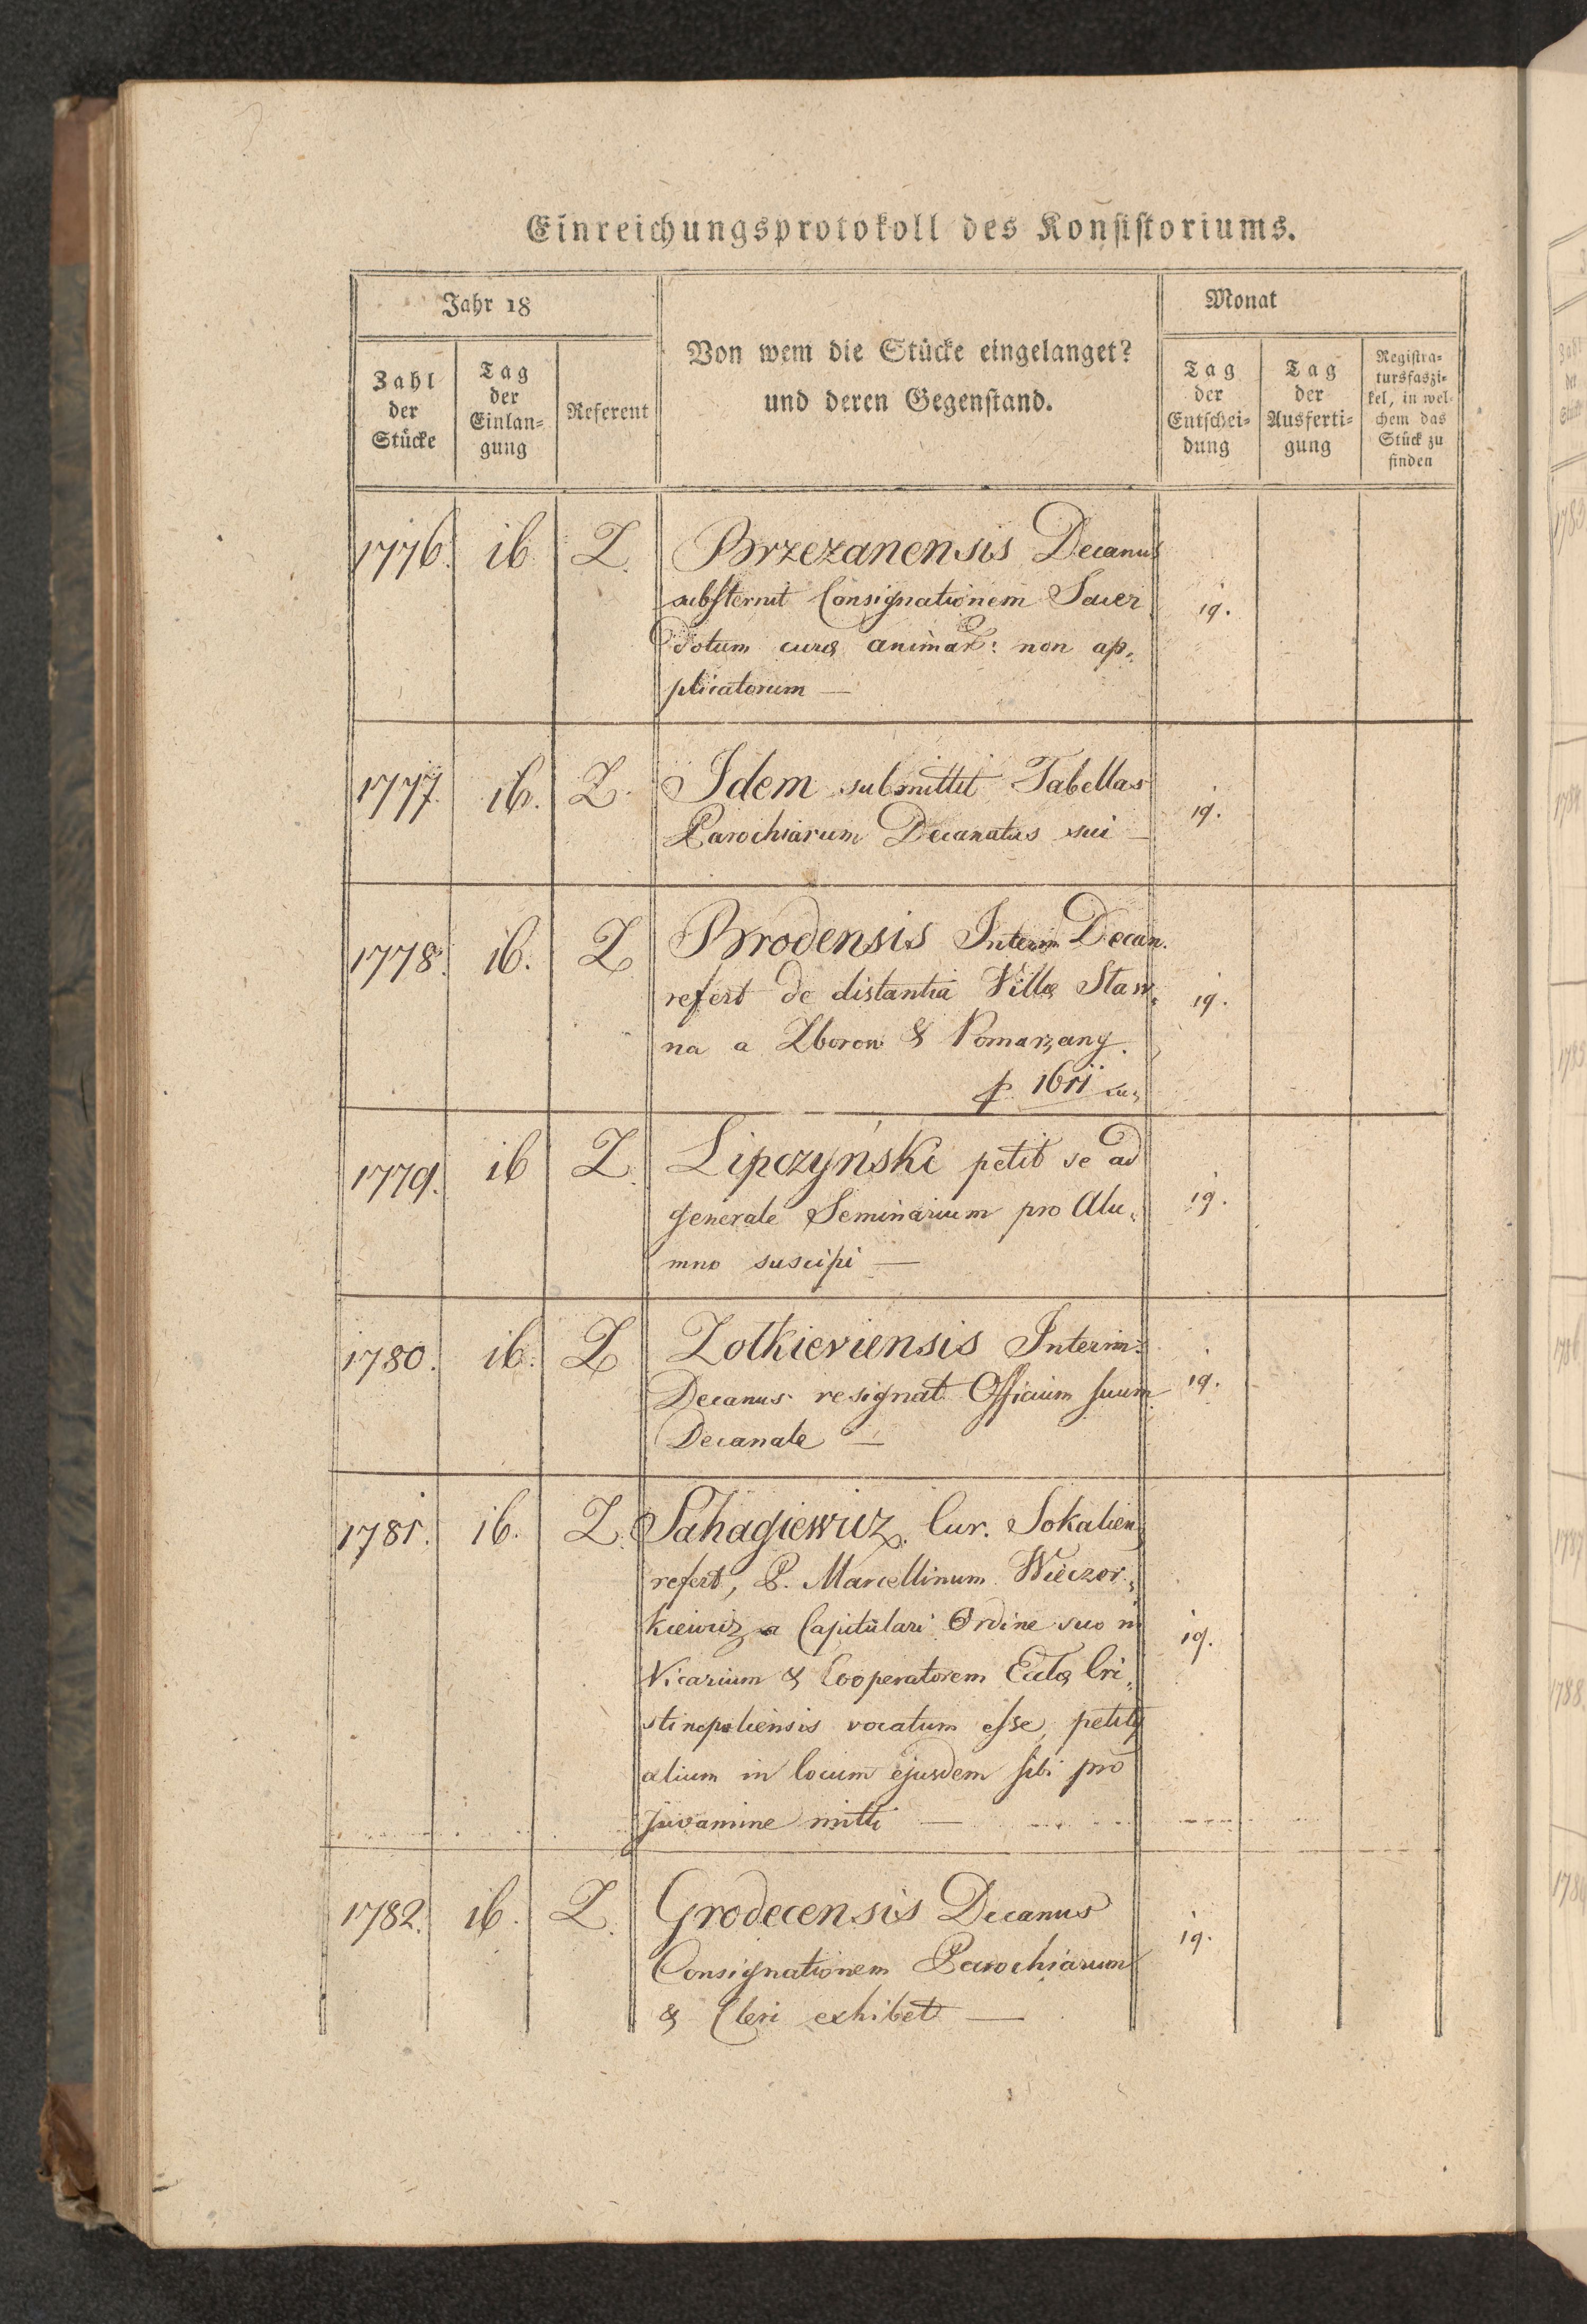 Einreichungsprotokoll des Konsistoriums.
Jahr 18
Monat
Zahl der Stücke
Tag der Einlan=gung
Referent
Von wem die Stücke eingelanget?
und deren Gegenstand.
Tag der Entschei=dung
Tag der Ausferti=gung
Registra=tursfaszi=kel, in wel=chem das Stück zu finden
1776. ib Z. Brzezanensis Decanus
substernit Consignationem Sacer 19.
dotum curæ animar: non ap„
plicatorum —
1777. ib. Z. Idem submittit Tabellas
Parochiarum Decanatus sui — 19.
1778. ib. Z Brodensis Interim Decan.
refert de distantia Villæ Staw„ 19.
na a Zborow & Pomarzany.
1779. ib Z. Lipczyński petit se ad
generale Seminarium pro Alu„ 19.
mno suscipi —
1780. ib. Z Zolkieviensis Interim:
Decanus resignat Officium suum 19.
Decanale —
1781. ib. Z. Sahagiewicz. Cur. Sokalien„
refert, P. Marcellinum Wieczor„
kiewicz a Capitulari Ordine suo in 19.
Vicarium & Cooperatorem Eccliæ Cri„
stinopoliensis vocatum esse, petitq
alium in locum ejusdem sibi pro
juvamine mitti —
1782. ib. Z. Grodecensis Decanus
Consignationem Parochiarum 19.
& Cleri exhibet —